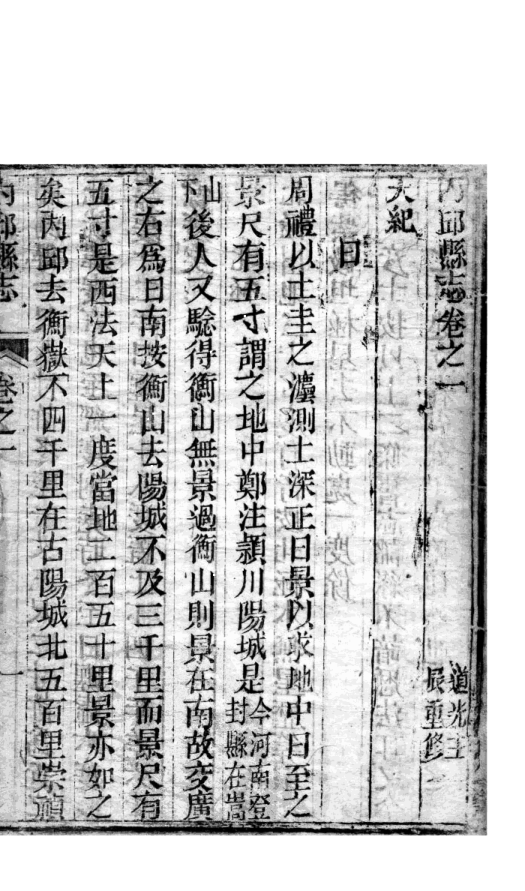 內邱縣志卷之一
道光壬
辰重修
天紀
日
周禮以土圭之灋測土深正日景以求地中日至之
景尺有五寸謂之地中鄭注潁川陽城是今河南登
封縣在嵩
山下後人又驗得衡山無景過衡山則景在南故交廣
之右爲日南按衡山去陽城不及三千里而景尺有
五寸是西法天上一度當地二百五十里景亦如之
矣內邱去衡嶽不四千里在古陽城北五百里崇禎
內邱縣志
卷之一
一